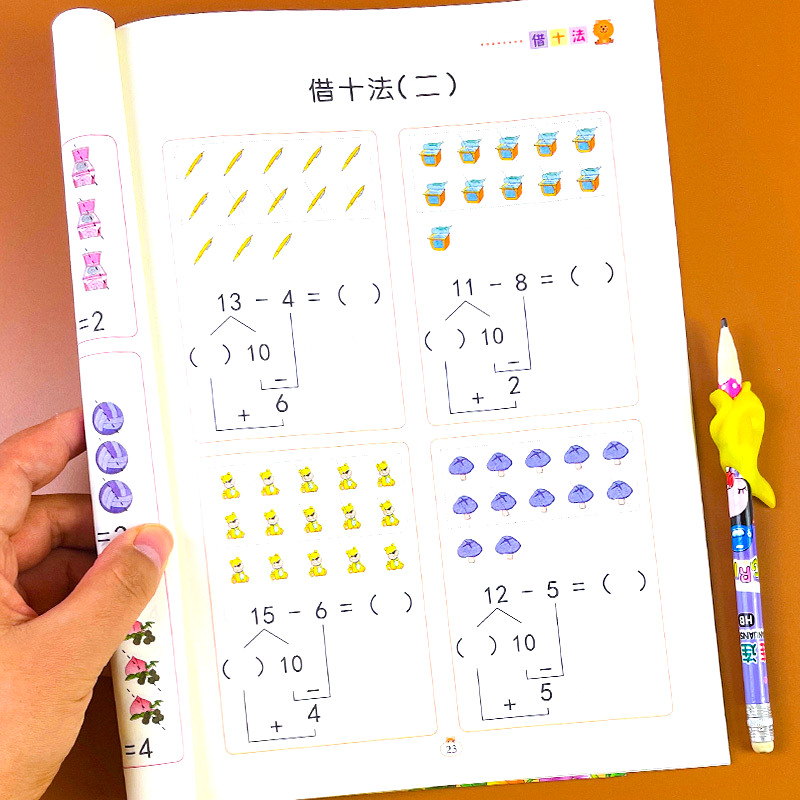 借十法
借十法(二)
13 - 4 = ( )
( ) 10
-
+ 6
11 - 8 = ( )
( ) 10
-
+ 2
15 - 6 = ( )
( ) 10
-
+ 4
12 - 5 = ( )
( ) 10
-
+ 5
23
=2
=4
HB